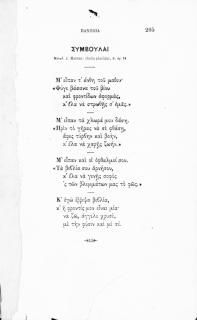 ΠΑΝΤΟΙΑ 205
ΣΥΜΒΟΥΛΑΙ
Μ' εἶπαν τ' ἄνθη τοῦ μαΐου·
«Φύγε βάσανα τοῦ βίου
καὶ φροντίδων ἀφορμάς,
κ' ἔλα νὰ στρωθῇς σ' ἐμᾶς.»
Μ' εἶπαν τὰ χλωρά μου δάση.
«Πρὶν τὸ γῆρας νὰ σὲ φθάσῃ,
ἄφες τύρβην καὶ βοήν,
κ' ἔλα νὰ χαρῇς ζωήν.»
Μ' εἶπαν καὶ οἱ ὀφθαλμοί σου.
«Τὰ βιβλία σου ἀρνήσου,
κ' ἔλα νὰ γενῇς σοφὸς
'ς τῶν βλεμμάτων μας τὸ φῶς.»
Κ' ἐγὼ ἔρριψα βιβλία,
κ' ἡ φροντίς μου εἶναι μία·
νὰ ζῶ, ἄγγελε χρυσέ,
μὲ τὴν φύσιν καὶ μὲ σέ.